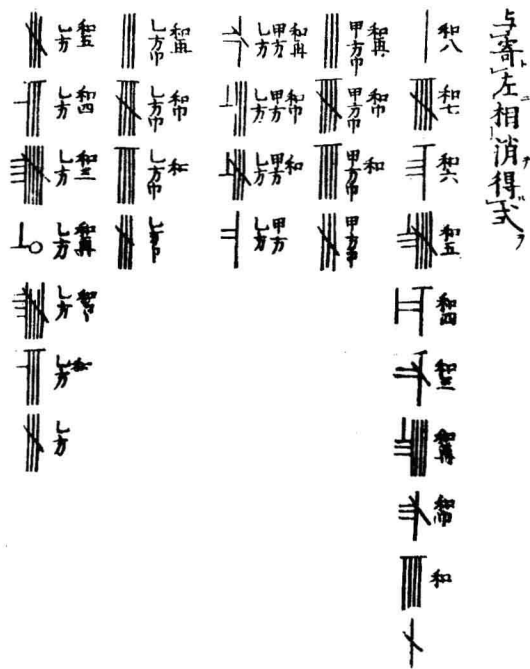 与寄左相消得式
和八
和七
和六
和五
和四
和三
和再
和巾
和
和再 甲方巾
和巾 甲方巾
和 甲方巾
甲方巾
和再 甲方 乙方
和巾 甲方 乙方
和 甲方 乙方
甲方 乙方
和再 乙方巾
和巾 乙方巾
和 乙方巾
乙方巾
和五 乙方
和四 乙方
和三 乙方
和再 乙方
和巾 乙方
和 乙方
乙方